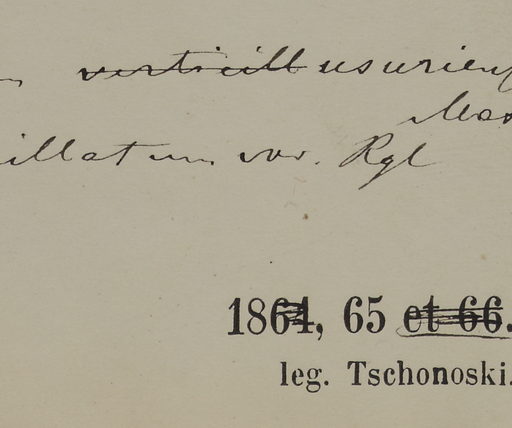 verticill usurien
Max
illatum var. Rgl
1864, 65 et 66.
leg. Tschonoski.